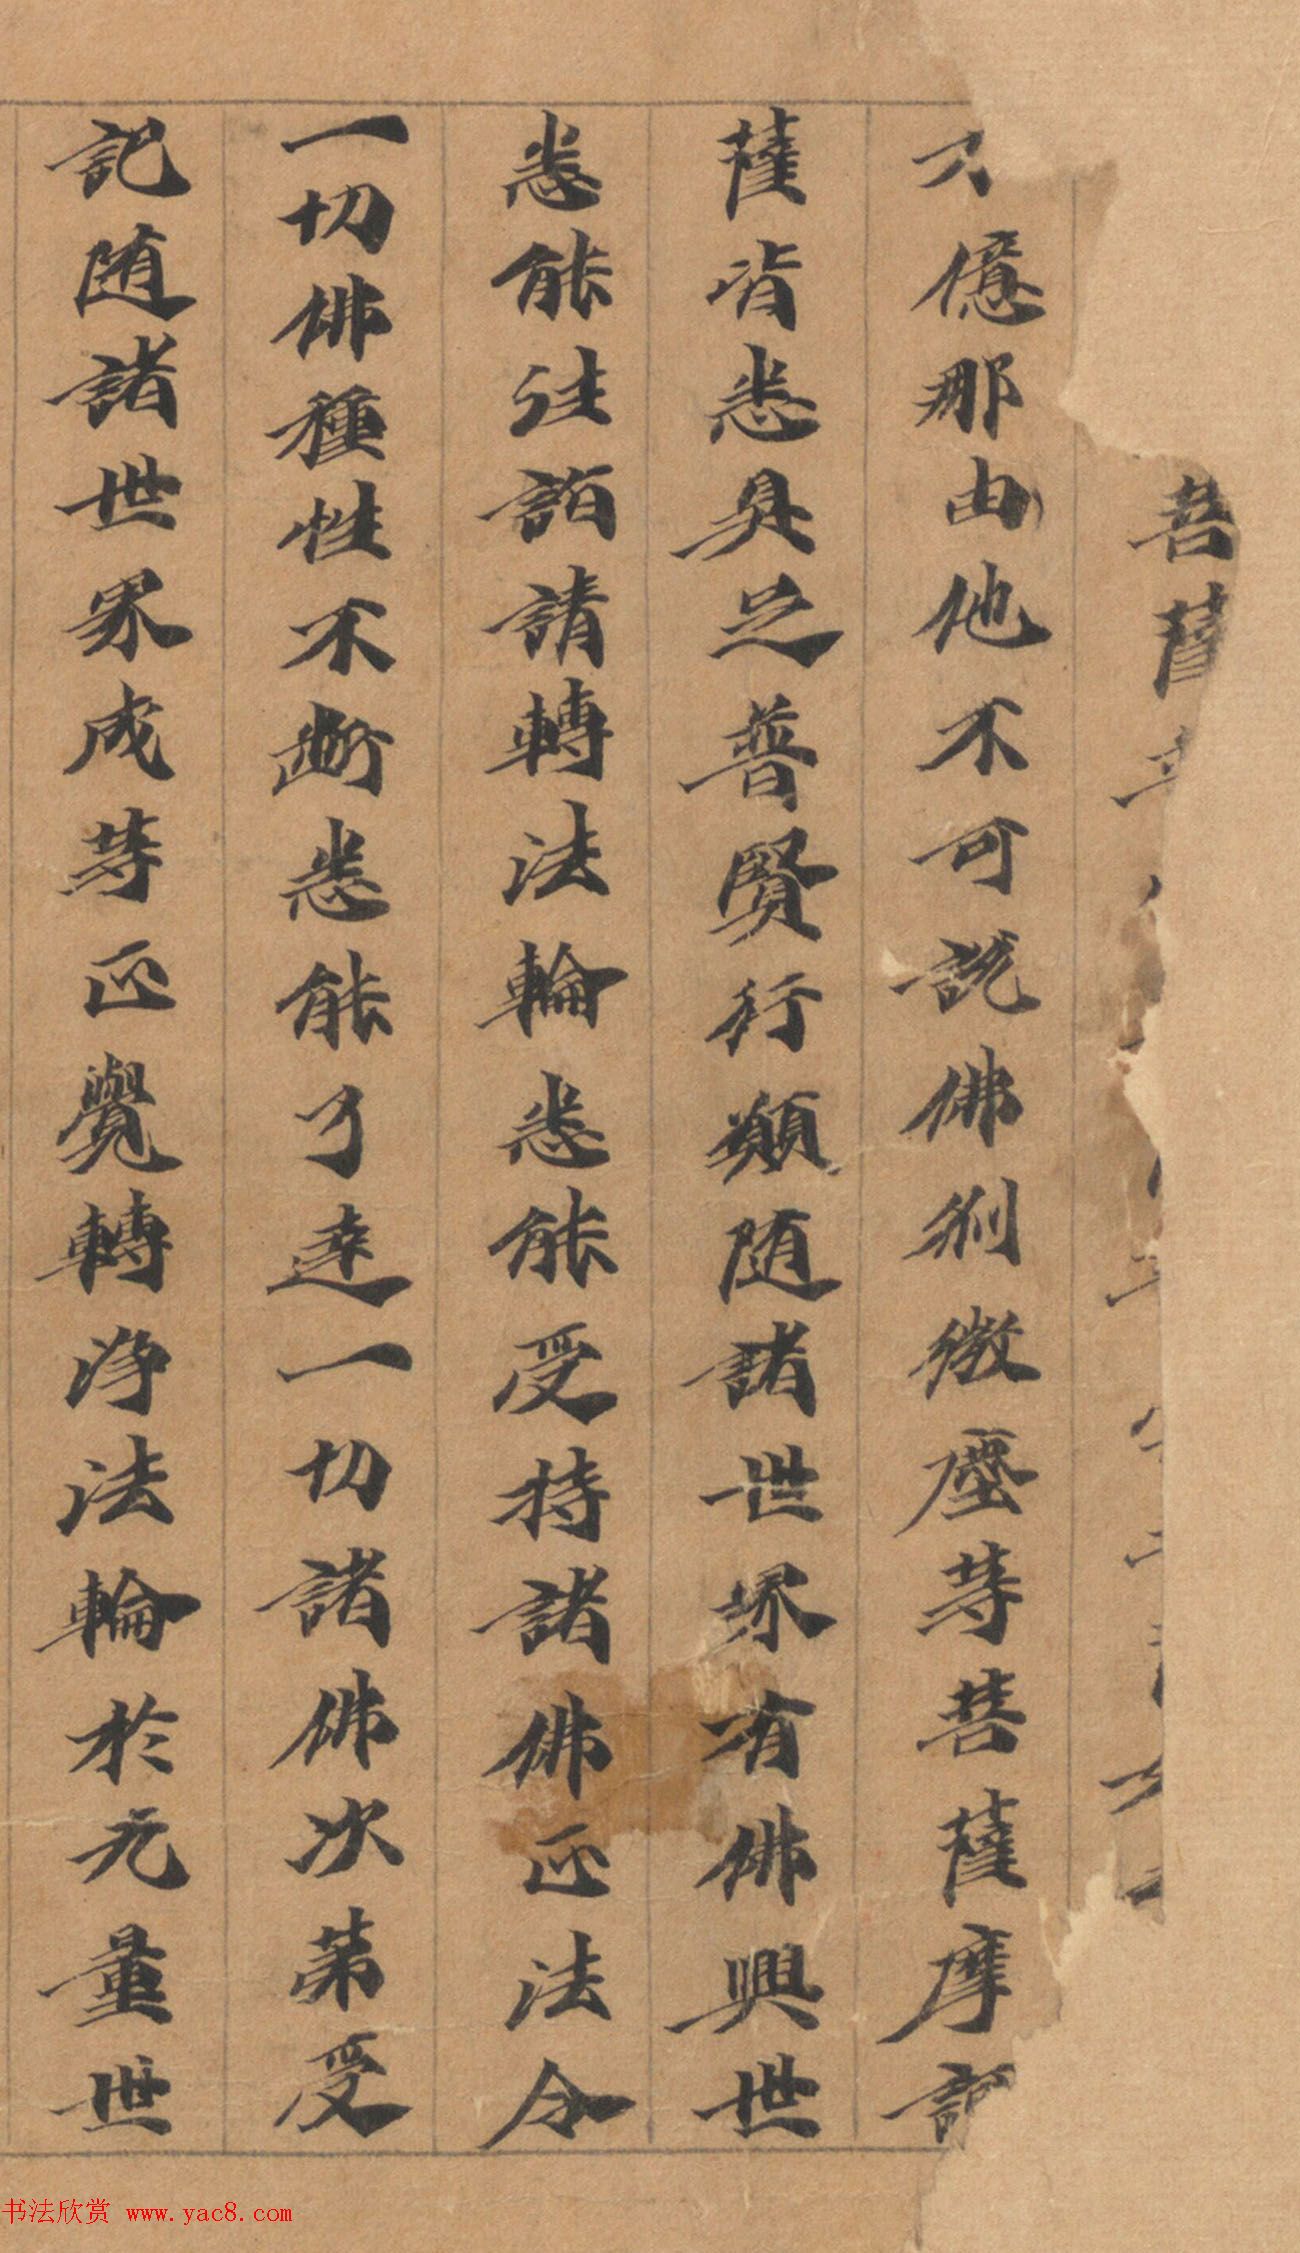 菩薩
億那由他不可說佛刹微塵等菩薩摩訶
薩皆悉具足普賢行願随諸世界有佛興世
悉能往詣請轉法輪悉能受持諸佛正法令
一切佛種性不斷悉能了達一切諸佛次第受
記随諸世界成等正覺轉淨法輪於无量世
书法欣赏 www.yac8.com